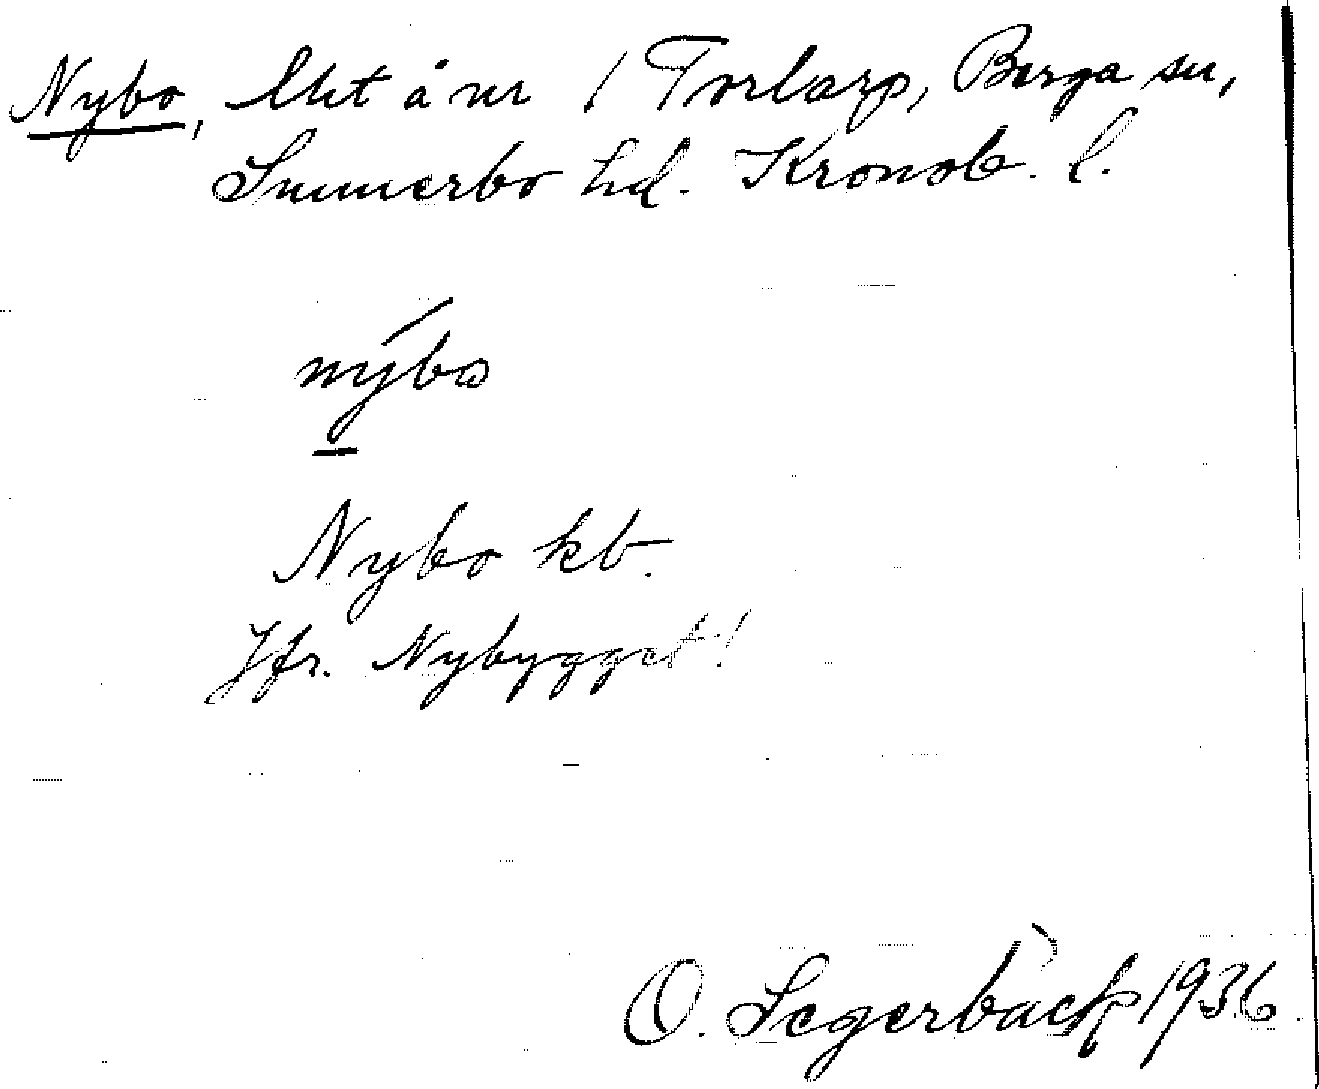 Nybo, lht å nr 1 Torlarp, Berga sn,
Sunnerbo hd. Kronob. l.
nýbo
Nybo kb.
Jfr. Nybygget!
O. Segerbäck 1936